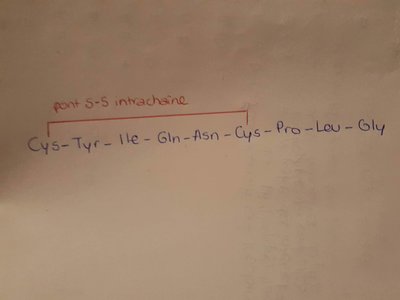 pont S-S intrachaîne
Cys-Tyr-Ile-Gln-Asn-Cys-Pro-Leu-Gly